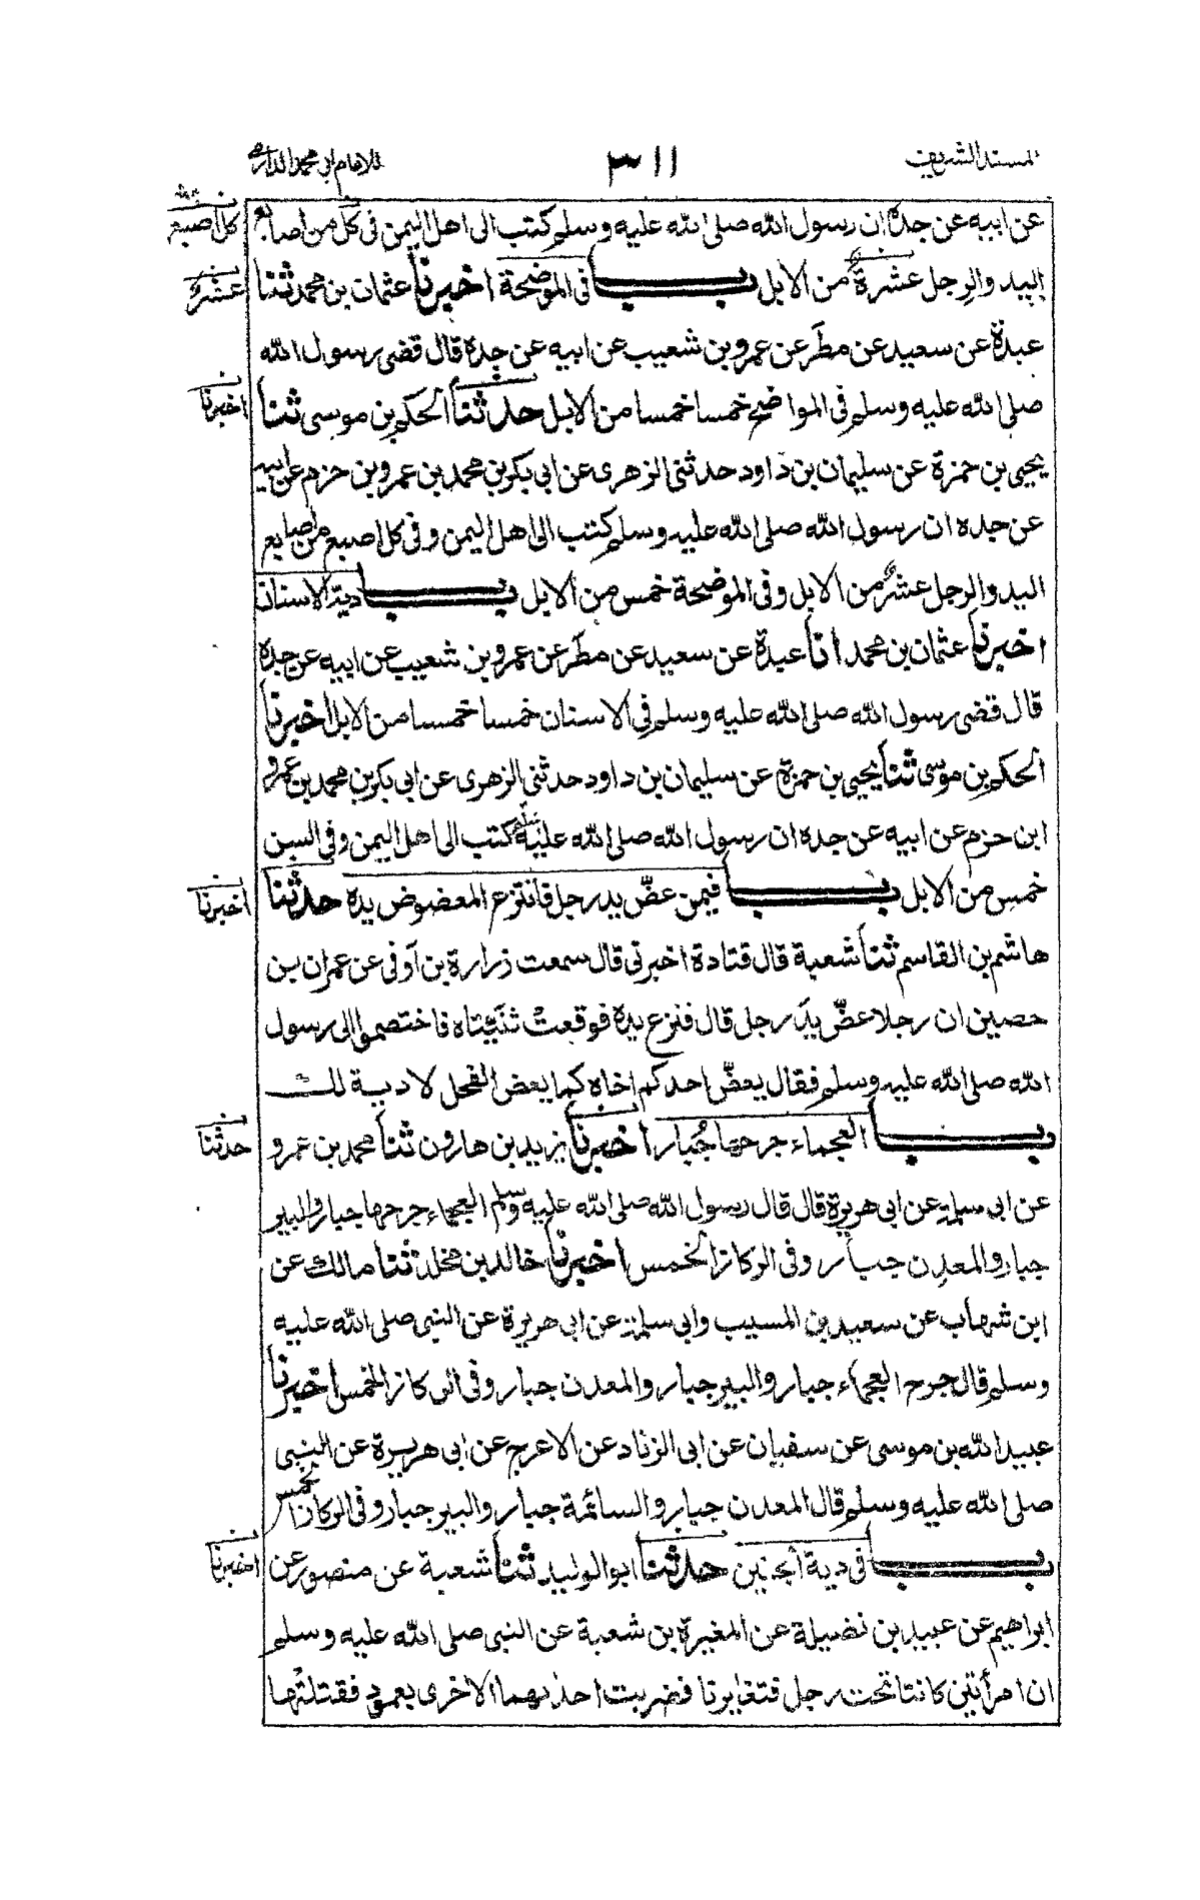 المسند الشريف
٣١١
للامام ابي محمد الدارمي
عن ابيه عن جده ان رسول الله صلى الله عليه وسلم كتب الى اهل اليمن في كل من اصابع
كل اصبع
اليد والرجل عشرة من الابل باب في الموضحة اخبرنا عثمان بن محمد ثنا
عشر
عبدة عن سعيد عن مطر عن عمرو بن شعيب عن ابيه عن جده قال قضى رسول الله
صلى الله عليه وسلم في المواضح خمسا خمسا من الابل حدثنا الحكم بن موسى ثنا
اخبرنا
يحيى بن حمزة عن سليمان بن داود حدثني الزهرى عن ابى بكر بن محمد بن عمرو بن حزم عن ابيه
عن جده ان رسول الله صلى الله عليه وسلم كتب الى اهل اليمن وفى كل اصبع من اصابع
اليد والرجل عشر من الابل وفى الموضحة خمس من الابل باب دية الاسنان
اخبرنا عثمان بن محمد انا عبدة عن سعيد عن مطر عن عمرو بن شعيب عن ابيه عن جده
قال قضى رسول الله صلى الله عليه وسلم في الاسنان خمسا خمسا من الابل اخبرنا
الحكم بن موسى ثنا يحيى بن حمزة عن سليمان بن داود حدثنى الزهرى عن ابى بكر بن محمد بن عمرو
ابن حزم عن ابيه عن جده ان رسول الله صلى الله عليه وسلم كتب الى اهل اليمن وفى السن
خمس من الابل باب فيمن عضّ يد رجل فانتزع المعضوض يده حدثنا
اخبرنا
هاشم بن القاسم ثنا شعبة قال قتادة اخبرنى قال سمعت زرارة بن أوفى عن عمران بن
حصين ان رجلا عضّ يد رجل قال فنزع يده فوقعت ثنيتاه فاختصموا الى رسول
الله صلى الله عليه وسلم فقال يعضّ احدكم اخاه كما يعض الفحل لا دية لك
باب العجماء جرحها جُبار اخبرنا يزيد بن هارون ثنا محمد بن عمرو
حدثنا
عن ابى سلمة عن ابى هريرة قال قال رسول الله صلى الله عليه وسلم العجماء جرحها جبار والبير
جبار والمعدن جبار وفى الركاز الخمس اخبرنا خالد بن مخلد ثنا مالك عن
ابن شهاب عن سعيد بن المسيب وابى سلمة عن ابى هريرة عن النبى صلى الله عليه
وسلم قال جرح العجماء جبار والبير جبار والمعدن جبار وفى الركاز الخمس اخبرنا
عبيد الله بن موسى عن سفيان عن ابى الزناد عن الاعرج عن ابى هريرة عن النبى
صلى الله عليه وسلم قال المعدن جبار والسائمة جبار والبير جبار وفى الركاز الخمس
باب فى دية الجنين حدثنا ابو الوليد ثنا شعبة عن منصور عن
اخبرنا
ابراهيم عن عبيد بن نضيلة عن المغيرة بن شعبة عن النبى صلى الله عليه وسلم
ان امرأتين كانتا تحت رجل فتغايرتا فضربت احدٰىهما الاخرى بعمود فقتلتها